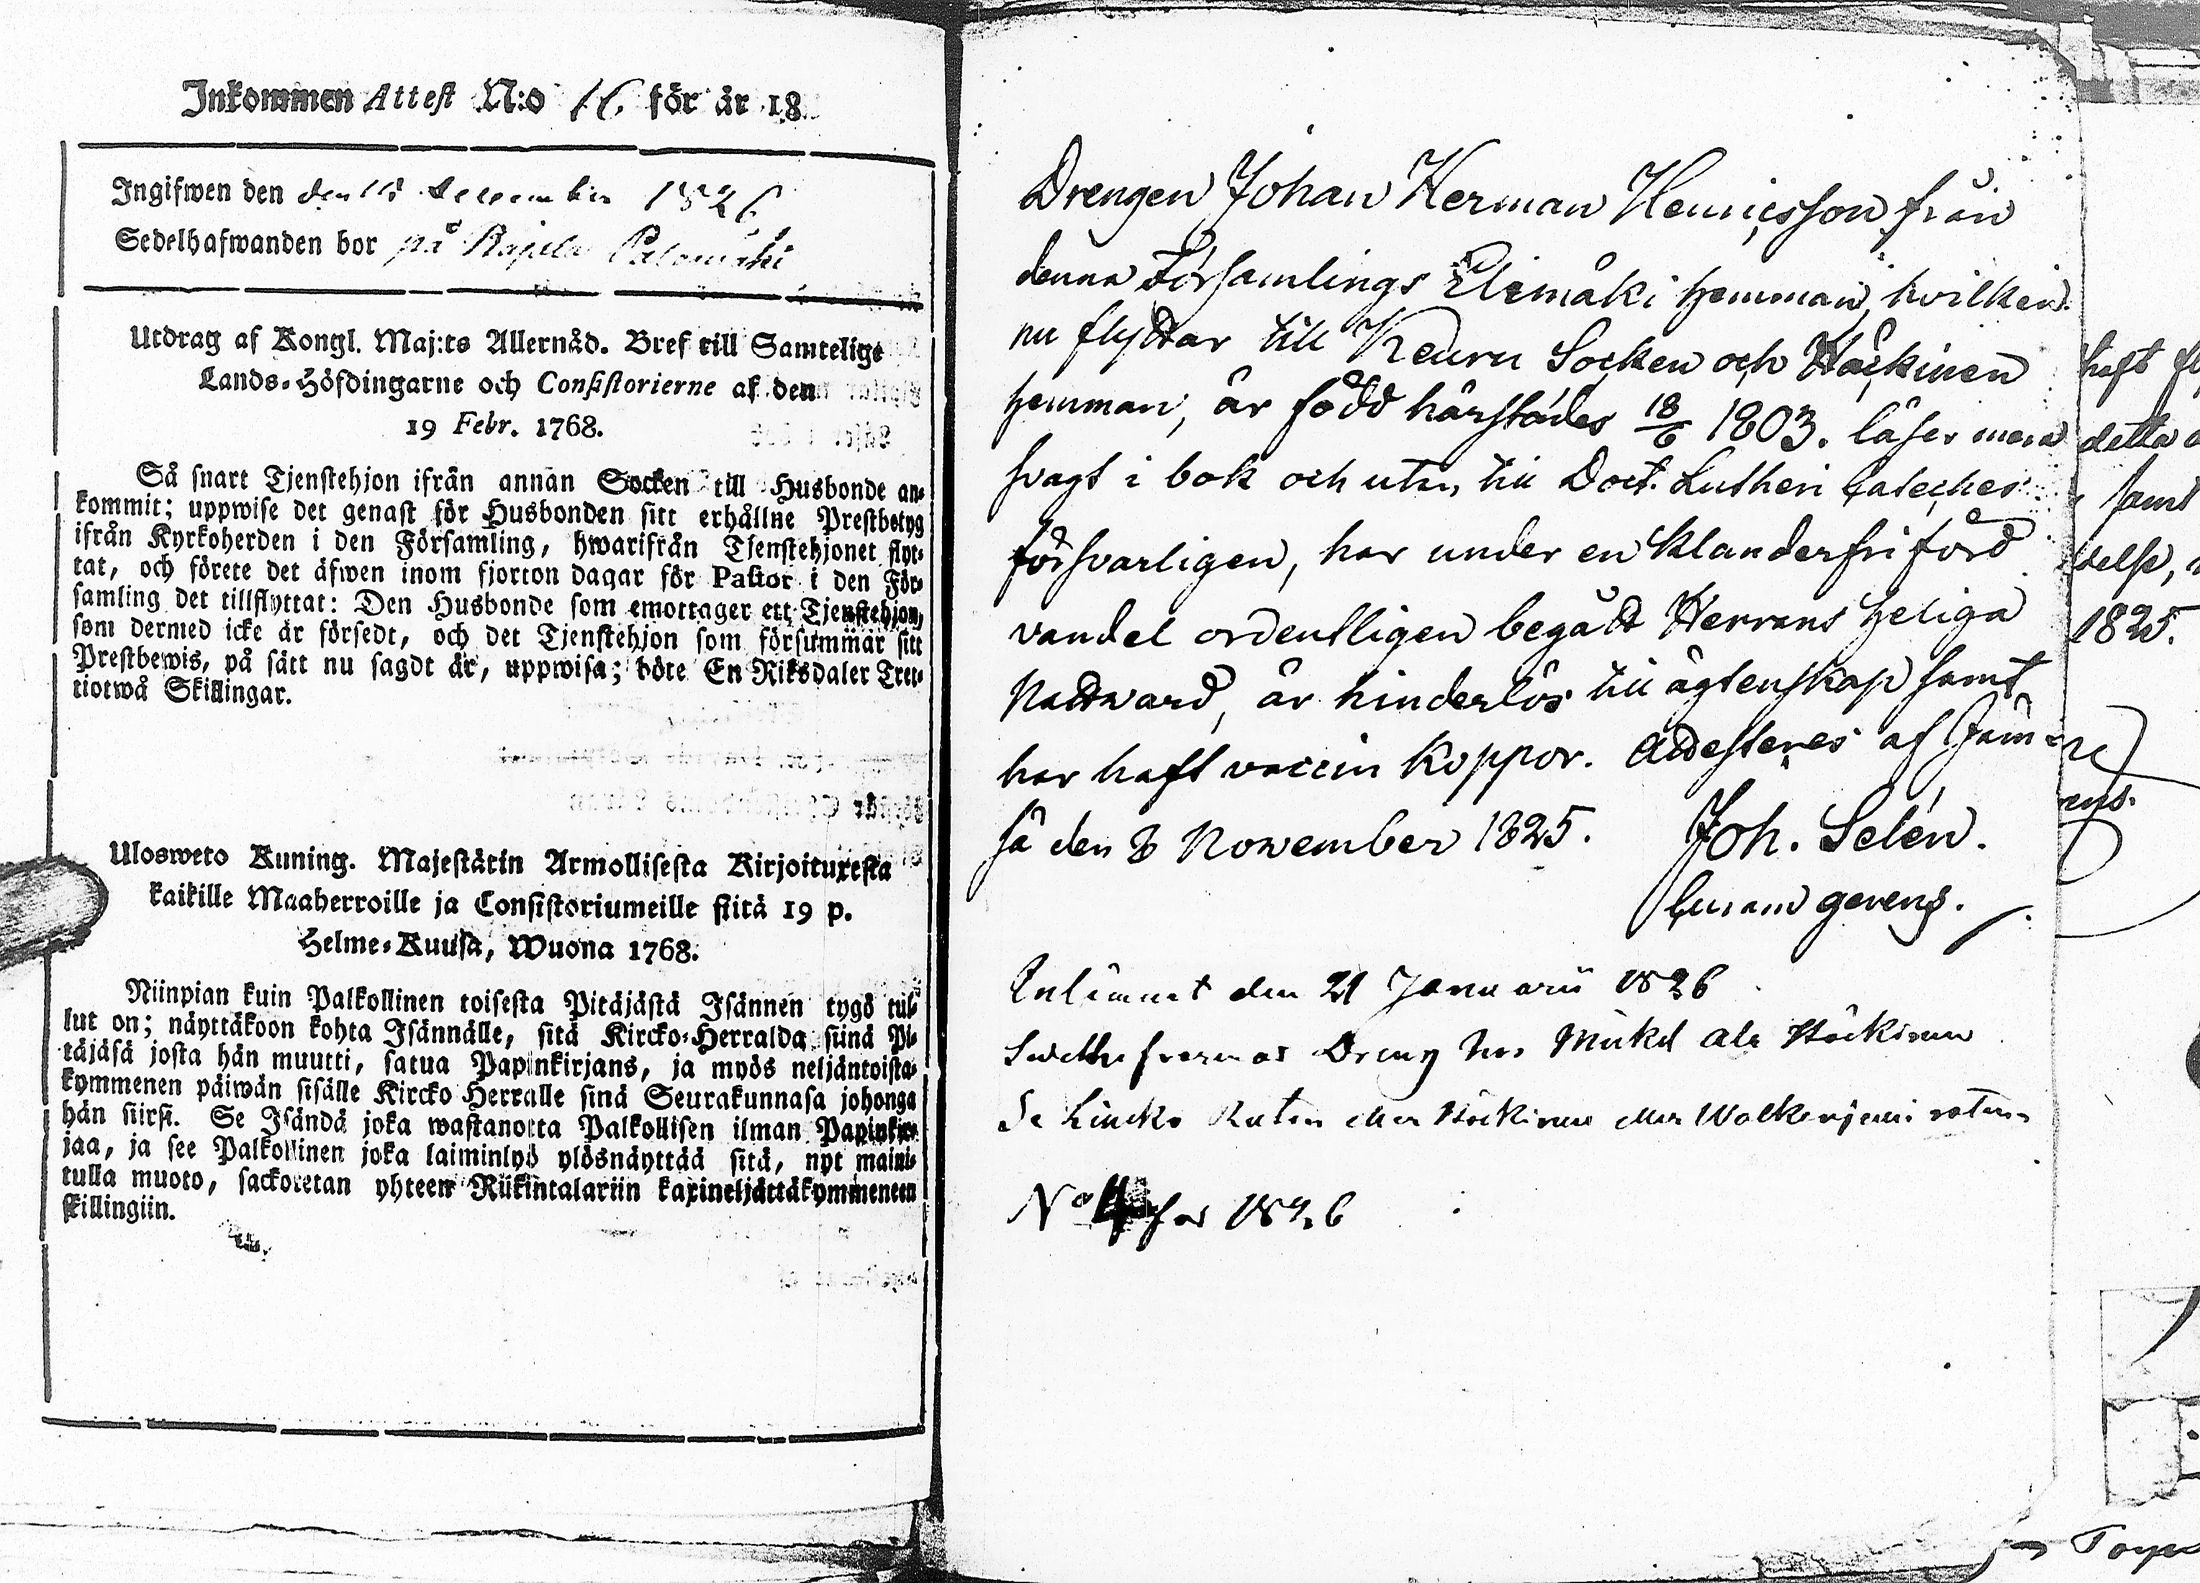 Inkommen Attest N:o 16 för år 18
Ingifwen den den 15 december 1826
Sedelhafwanden bor på Rajala Palomäki
Utdrag af Kongl. Maj:ts Allernåd. Bref till Samtelige
Lands-Höfdingarne och Consistorierne af den
19 Febr. 1768.
Så snart Tjenstehjon ifrån annan Socken till Husbonde an-
kommit; uppwise det genast för Husbonden sitt erhållne Prestbetyg
ifrån Kyrkoherden i den Församling, hwarifrån Tjenstehjonet flyt-
tat, och förete det äfwen inom fjorton dagar för Pastor i den För-
samling det tillflyttat: Den Husbonde som emottager ett Tjenstehjon,
som dermed icke är försedt, och det Tjenstehjon som försummar sitt
Prestbewis, på sätt nu sagdt är, uppwisa; böte En Riksdaler Tret-
tiotwå Skillingar.
Ulosweto Kuning. Majestätin Armollisesta Kirjoituxesta
kaikille Maaherroille ja Consistoriumeille siitä 19 p.
Helme-Kuusa, Wuona 1768.
Niinpian kuin Palkollinen toisesta Pitäjästä Isännen tygö tul-
lut on; näyttäkoon kohta Isännälle, sitä Kircko-Herralda siinä Pi-
täjäsä josta hän muutti, saatua Papinkirjans, ja myös neljäntoista-
kymmenen päiwän sisälle Kircko Herralle sinä Seurakunnasa johonga
hän siirsi. Se Isändä joka wastanotta Palkollisen ilman Papinkir-
jaa, ja see Palkollinen joka laiminlyö ylösnäyttää sitä, nyt maini-
tulla muoto, sackotetan yhteen Riikintalariin kaxineljättäkymmeneen
skillingiin.
Drengen Johan Herman Henricsson från
denna Församlings Elemäki hemman, hvilken
nu flyttar till Keuru Socken och Häckinen
hemman, är född härstädes 18/6 1803. läser mera
svagt i bok och utan till Doct. Lutheri Cateches
försvarligen, har under en klanderfri förd
vandel ordentligen begådt Herrans heliga
Nattvard, är hinderlös till ägtenskap samt
har haft vaccin koppor. Attesteres af Jäm-
så den 8 November 1825. Joh. Selén.
Curam gerens.
Inlämnat den 21 Januarii 1826
Dreng hos Mickel
eller Häckinen eller
No 4 för 1826
haft
detta
samt
delse,
1825.